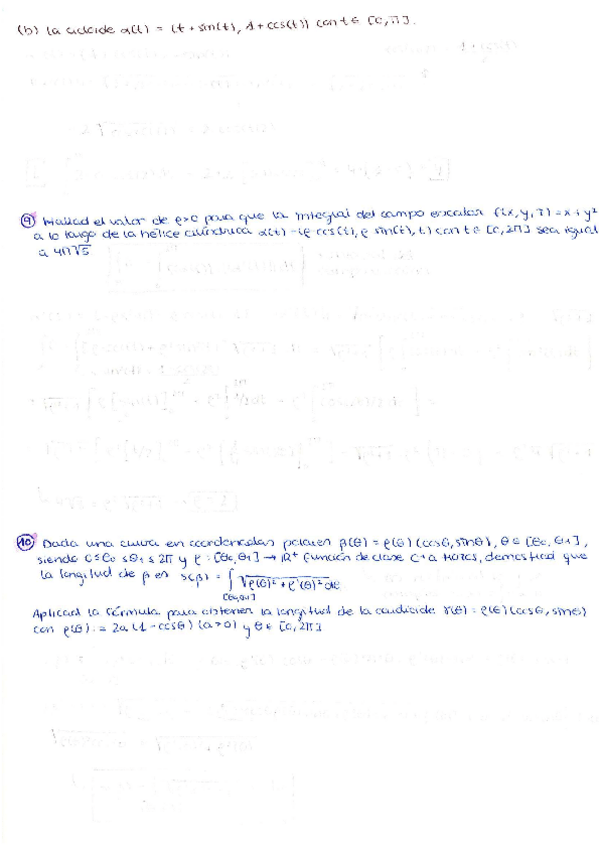 (b) la cicloide α(t) = (t + sin(t), 1 + cos(t)) con t ∈ [0, π].
⑨ Hallad el valor de ρ>0 para que la integral del campo escalar f(x, y, z) = x + y²
a lo largo de la hélice cilíndrica α(t) = (ρ cos(t), ρ sin(t), t) con t ∈ [0, 2π] sea igual
a 4π√5
⑩ Dada una curva en coordenadas polares β(θ) = ρ(θ) (cosθ, sinθ), θ ∈ [θ₀, θ₁],
siendo 0 ≤ θ₀ ≤ θ₁ ≤ 2π y ρ : [θ₀, θ₁] → ℝ⁺ función de clase C¹ a trozos, demostrad que
la longitud de β es s(β) = ∫[θ₀,θ₁] √ρ(θ)² + ρ'(θ)² dθ
Aplicad la fórmula para obtener la longitud de la cardioide γ(θ) = ρ(θ) (cosθ, sinθ)
con ρ(θ) := 2a (1 - cosθ) (a > 0) y θ ∈ [0, 2π]